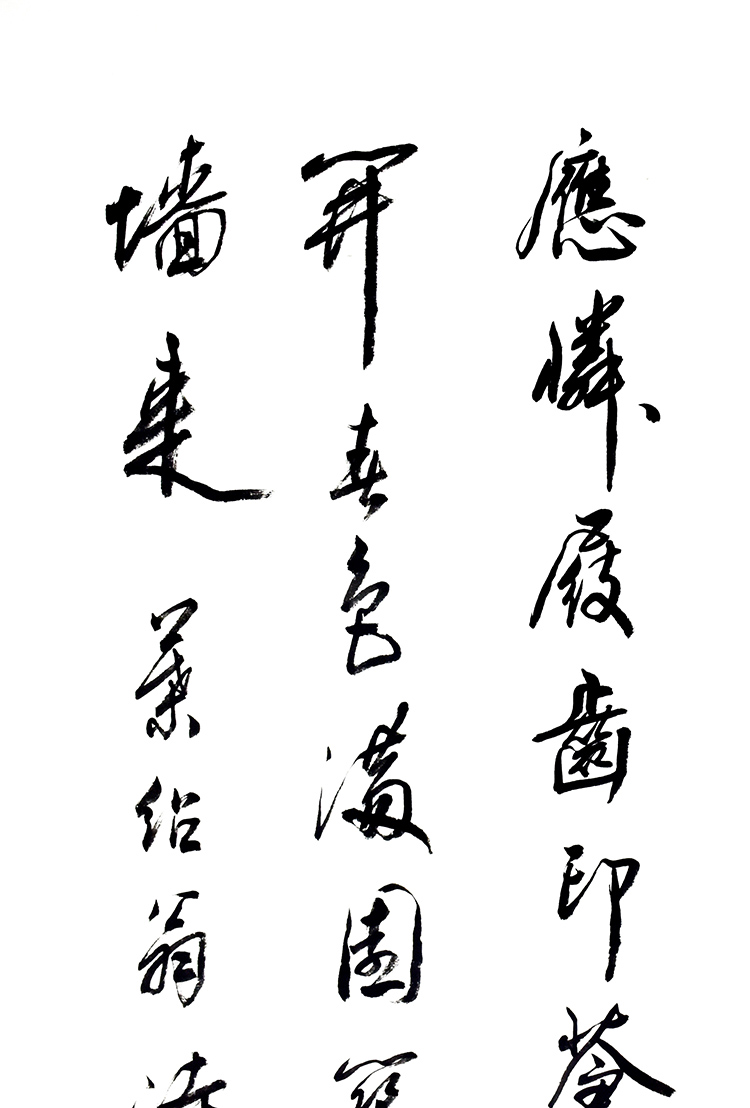 應憐屐齒印蒼
開春色滿園
墙来 葉紹翁